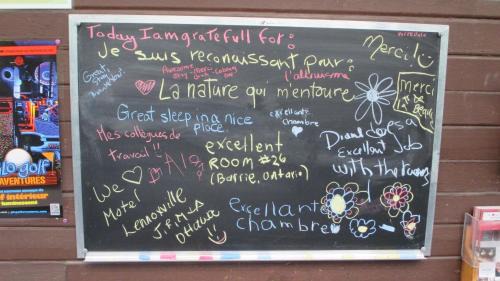 Today I am gratefull for:
Je suis reconaissant pour:
Merci!
l'altruisme
La nature qui m'entoure
Merci
Great sleep in a nice place
excellante chambre
Mes collègues de travail!!
excellent
ROOM #26
(Barrie, Ontario)
Diand does a
Excellent Job
with the rooms
We
Motel
Lennoxville
Ottawa
excellante
chambre
lo golf
AVENTURES